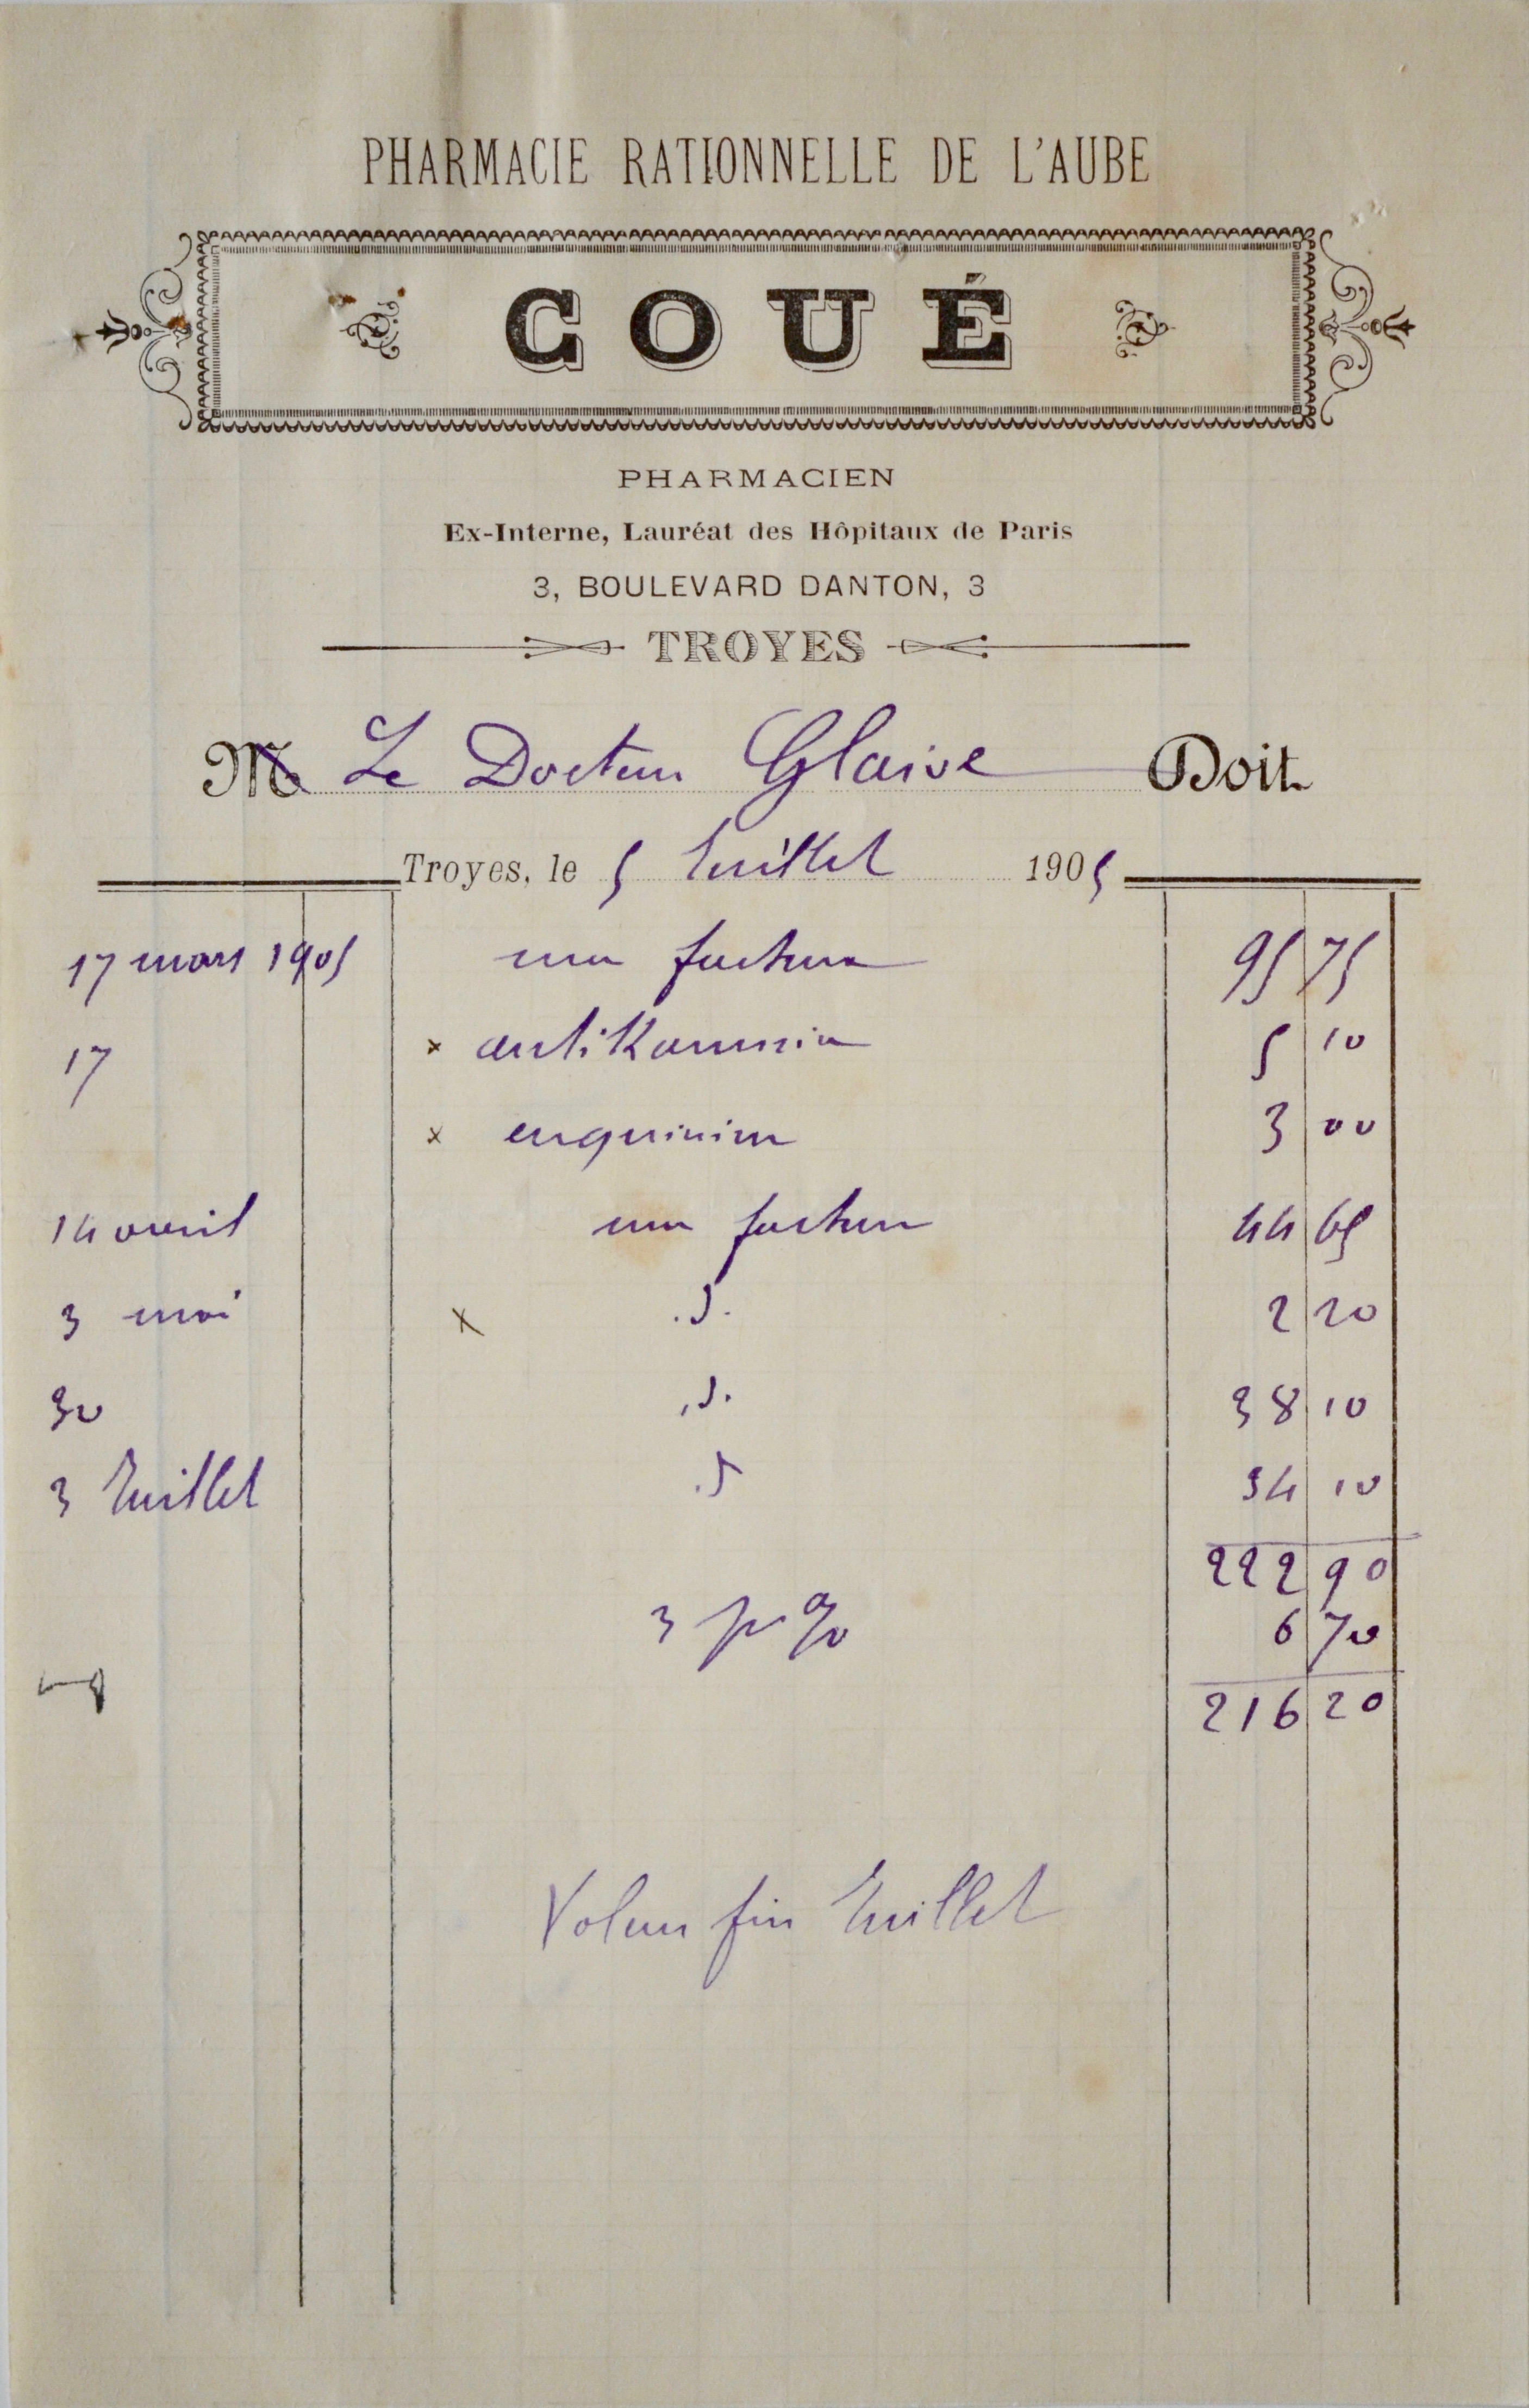 PHARMACIE RATIONNELLE DE L'AUBE
COUÉ
PHARMACIEN
Ex-Interne, Lauréat des Hôpitaux de Paris
3, BOULEVARD DANTON, 3
TROYES
M Le Docteur Glaive Doit
Troyes, le 5 Juillet 1905
17 mars 1905 ma facture 95 75
17 x antikamnia 5 10
x euquinine 3 00
14 avril ma facture 44 65
3 mai x .d. 2 20
30 .d. 38 10
3 Juillet .d 34 10
222 90
3 pr % 6 70
216 20
Valeur fin Juillet